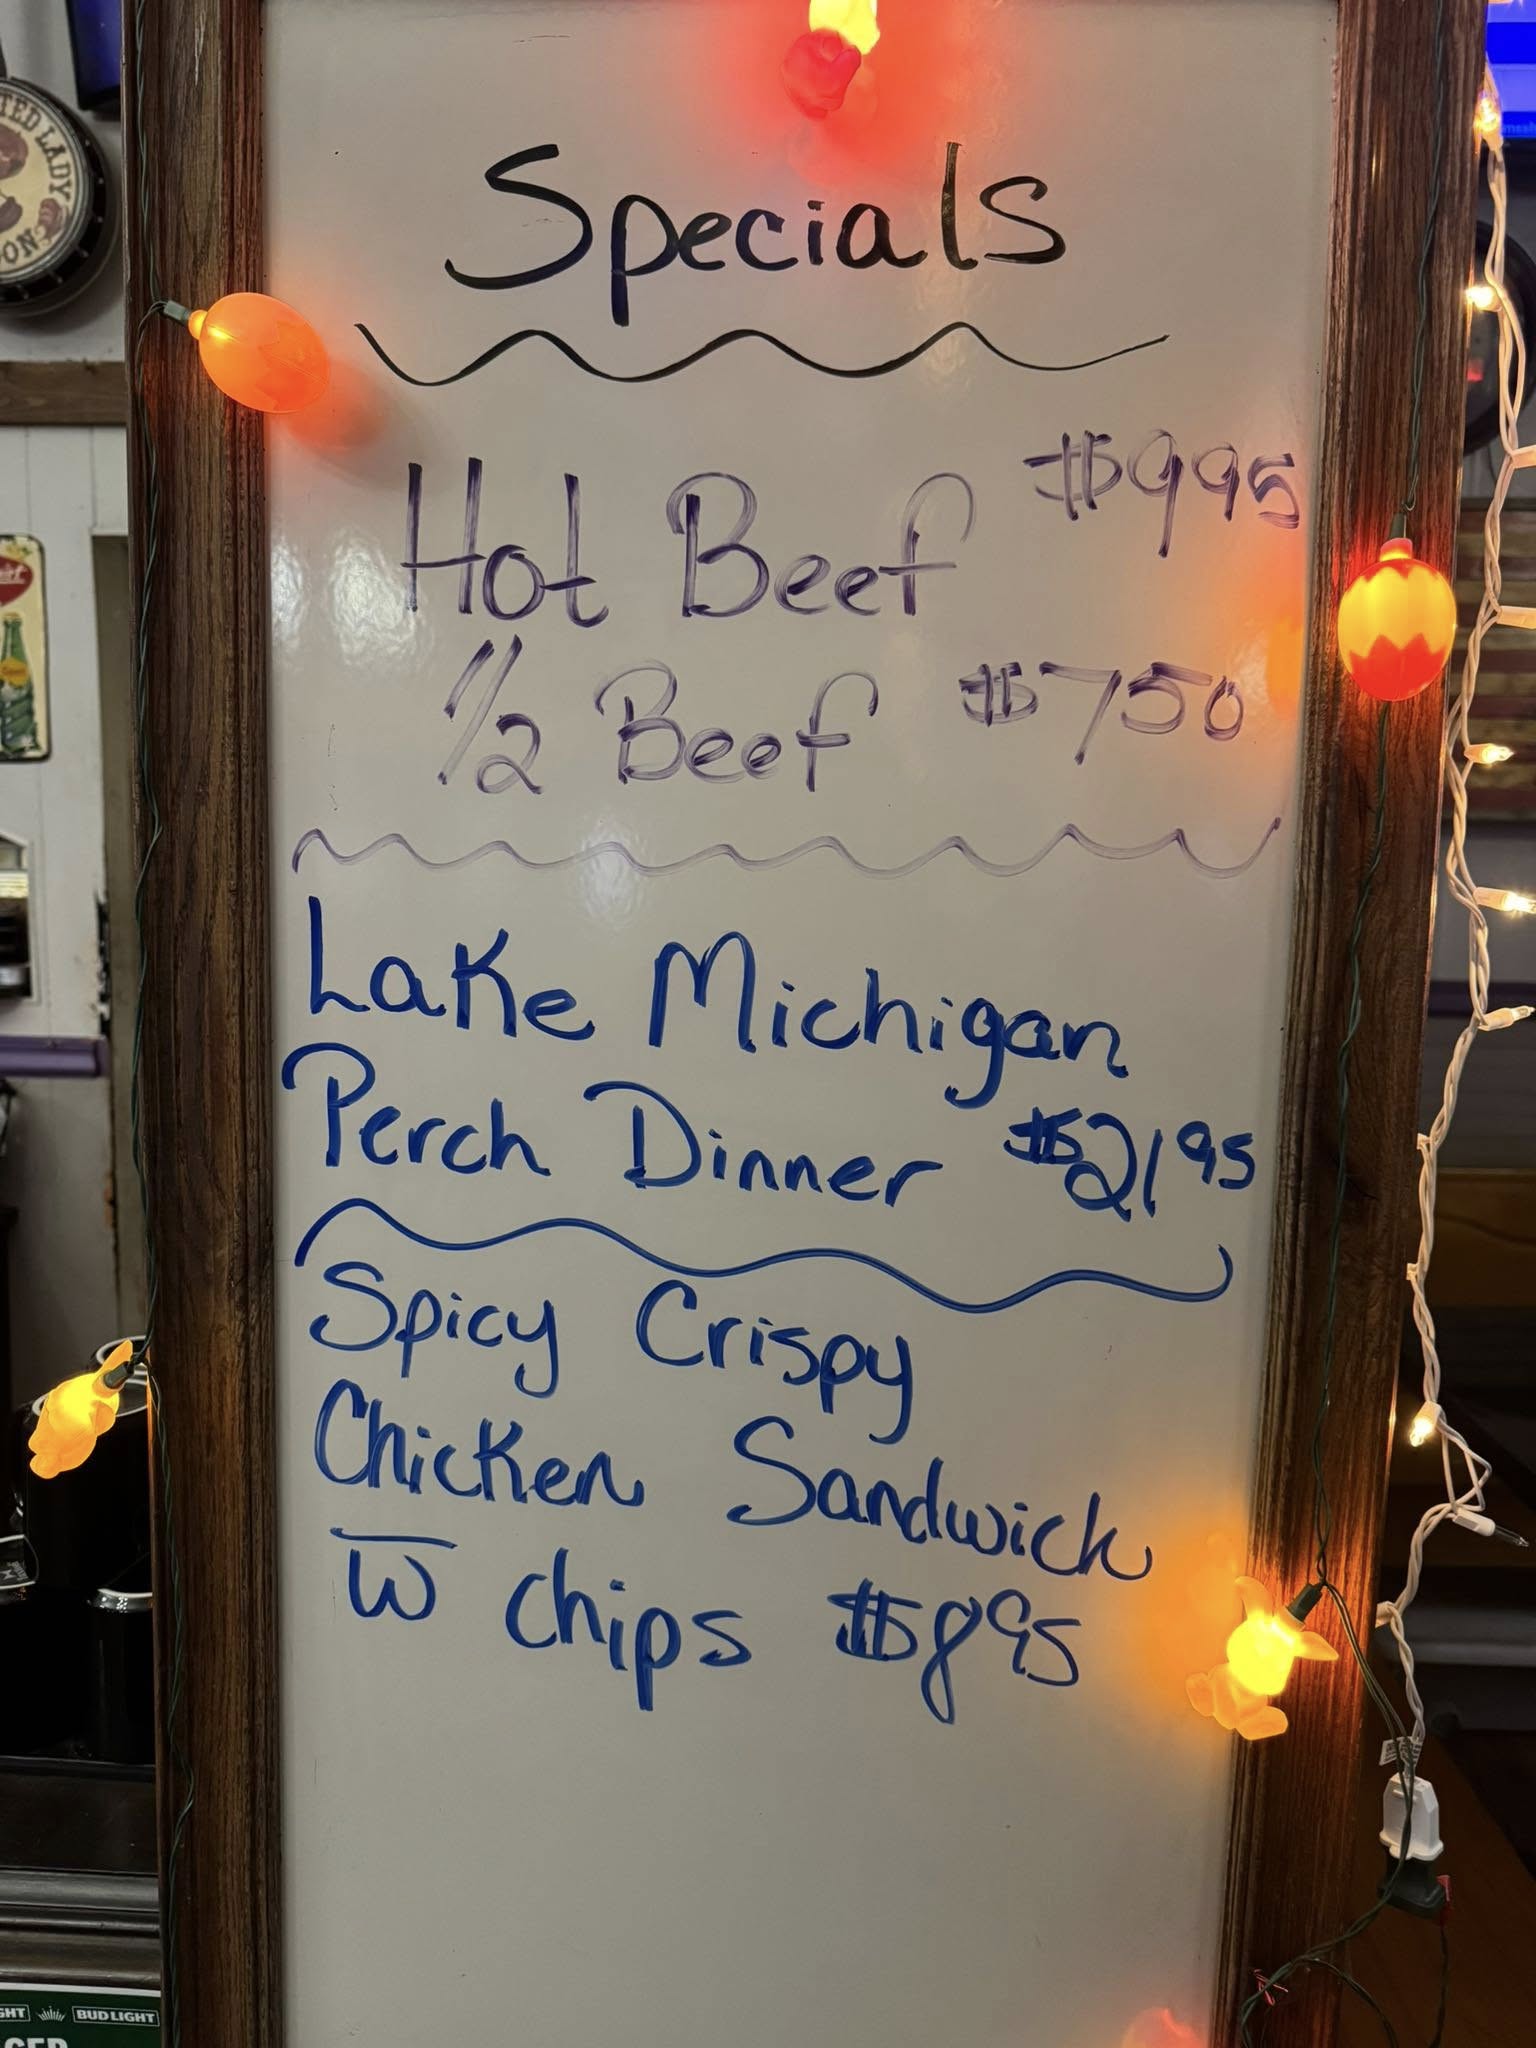 Specials
Hot Beef $9.95
1/2 Beef $7.50
Lake Michigan
Perch Dinner $21.95
Spicy Crispy
Chicken Sandwick
w chips $8.95
TED LADY
ON
BUD LIGHT